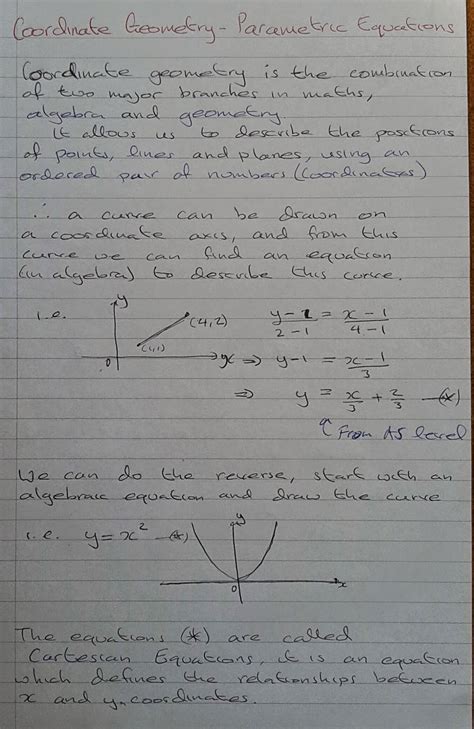 Coordinate Geometry - Parametric Equations
Coordinate geometry is the combination
of two major branches in maths,
algebra and geometry
It allows us to describe the positions
of points, lines and planes, using an
ordered pair of numbers (coordinates)
∴ a curve can be drawn on
a coordinate axis, and from this
curve we can find an equation
(in algebra) to describe this curve.
i.e. y (4,2) (1,1) 0 x
(y-1)/(2-1) = (x-1)/(4-1)
⇒ y-1 = (x-1)/3
⇒ y = x/3 + 2/3 —(*)
From AS level
We can do the reverse, start with an
algebraic equation and draw the curve
i.e. y = x² —(*) y 0 x
The equations (*) are called
Cartesian Equations, it is an equation
which defines the relationships between
x and y coordinates.